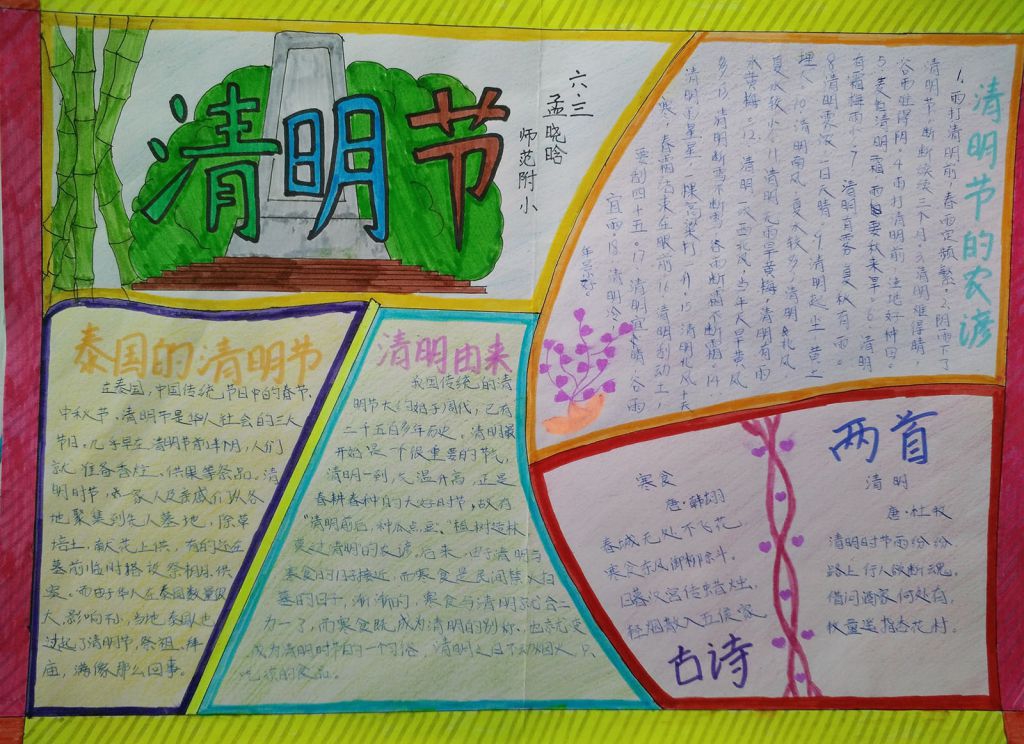 清明节
六.三
孟晓晗
师范附小
清明节的农谚
1.雨打清明前,春雨定频繁.2.阴雨下了
清明节,断断续续三个月.3.清明难得晴,
谷雨难得阴.4.雨打清明前,洼地好种田.
清明
有霜梅雨少.7.清明有雾,夏秋有雨.
8.清明雾浓,一日天晴.9.清明起尘,黄土
埋人.10.清明南风,夏水较多;清明北风,
夏水较少.11.清明无雨旱黄梅,清明有雨
水黄梅.12.清明一次西北风,当年天旱黄风
多.13.清明断雪不断雪,谷雨断霜不断霜.14.
清明
寒,春霜结束在眼前.16.清明刮动土,
要刮四十五.17.清明宜晴,谷雨
宜雨.18.清明冷,
年景好。
泰国的清明节
在泰国,中国传统节日中的春节、
中秋节、清明节是华人社会的三大
节日。几乎早在清明节前半个月,人们
就准备香炷、供果等祭品。清
明时节,一家人及亲戚们从各
地聚集到先人墓地,除草
培土,献花上供,有的还在
墓前临时搭设祭棚,供
案。而由于华人在泰国数量很
大,影响和,当地泰国人也
过起了清明节,祭祖、拜
庙,满像那么回事。
清明由来
我国传统的清
明节大约始于周代,已有
二千五百多年历史。清明最
开始是一个很重要的节气,
清明一到,气温升高,正是
春耕春种的大好时节,故有
“清明前后,种瓜点豆”、“植树造林,
莫过清明”的农谚。后来,由于清明与
寒食的日子接近,而寒食是民间禁火扫
墓的日子,渐渐的,寒食与清明就合二
为一了,而寒食既成为清明的别称,也变
成为清明时节的一个习俗,清明之日不动烟火,只
吃凉的食品。
两首
古诗
寒食
唐·韩翃
春城无处不飞花
寒食东风御柳斜.
日暮汉宫传蜡烛,
轻烟散入五侯家
清明
唐·杜牧
清明时节雨纷纷,
路上行人欲断魂.
借问酒家何处有,
牧童遥指杏花村.